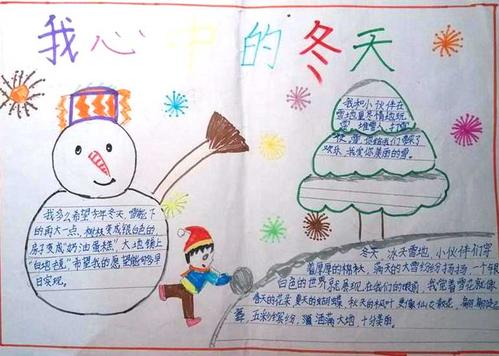 我心中的冬天
我多么希望今年冬天,雪能下
的再大一点,树林变成银白色的,
房子变成“奶油蛋糕”大地铺上
“白地毯”希望我的愿望能够早
日实现。
我和小伙伴在
雪地里尽情地玩
雪,堆雪人,打雪
仗,雪,你给我们带来了
欢乐,我爱你美丽的雪。
冬天,冰天雪地,小伙伴们穿
着厚厚的棉袄,满天的大雪纷纷扬扬,一个银
白色的世界就展现在我们的眼前,我觉着雪花就像
春天的花朵,夏天的蝴蝶,秋天的枫叶,更像仙女散花,翩翩
舞,五彩缤纷,洒满大地,十分美丽。